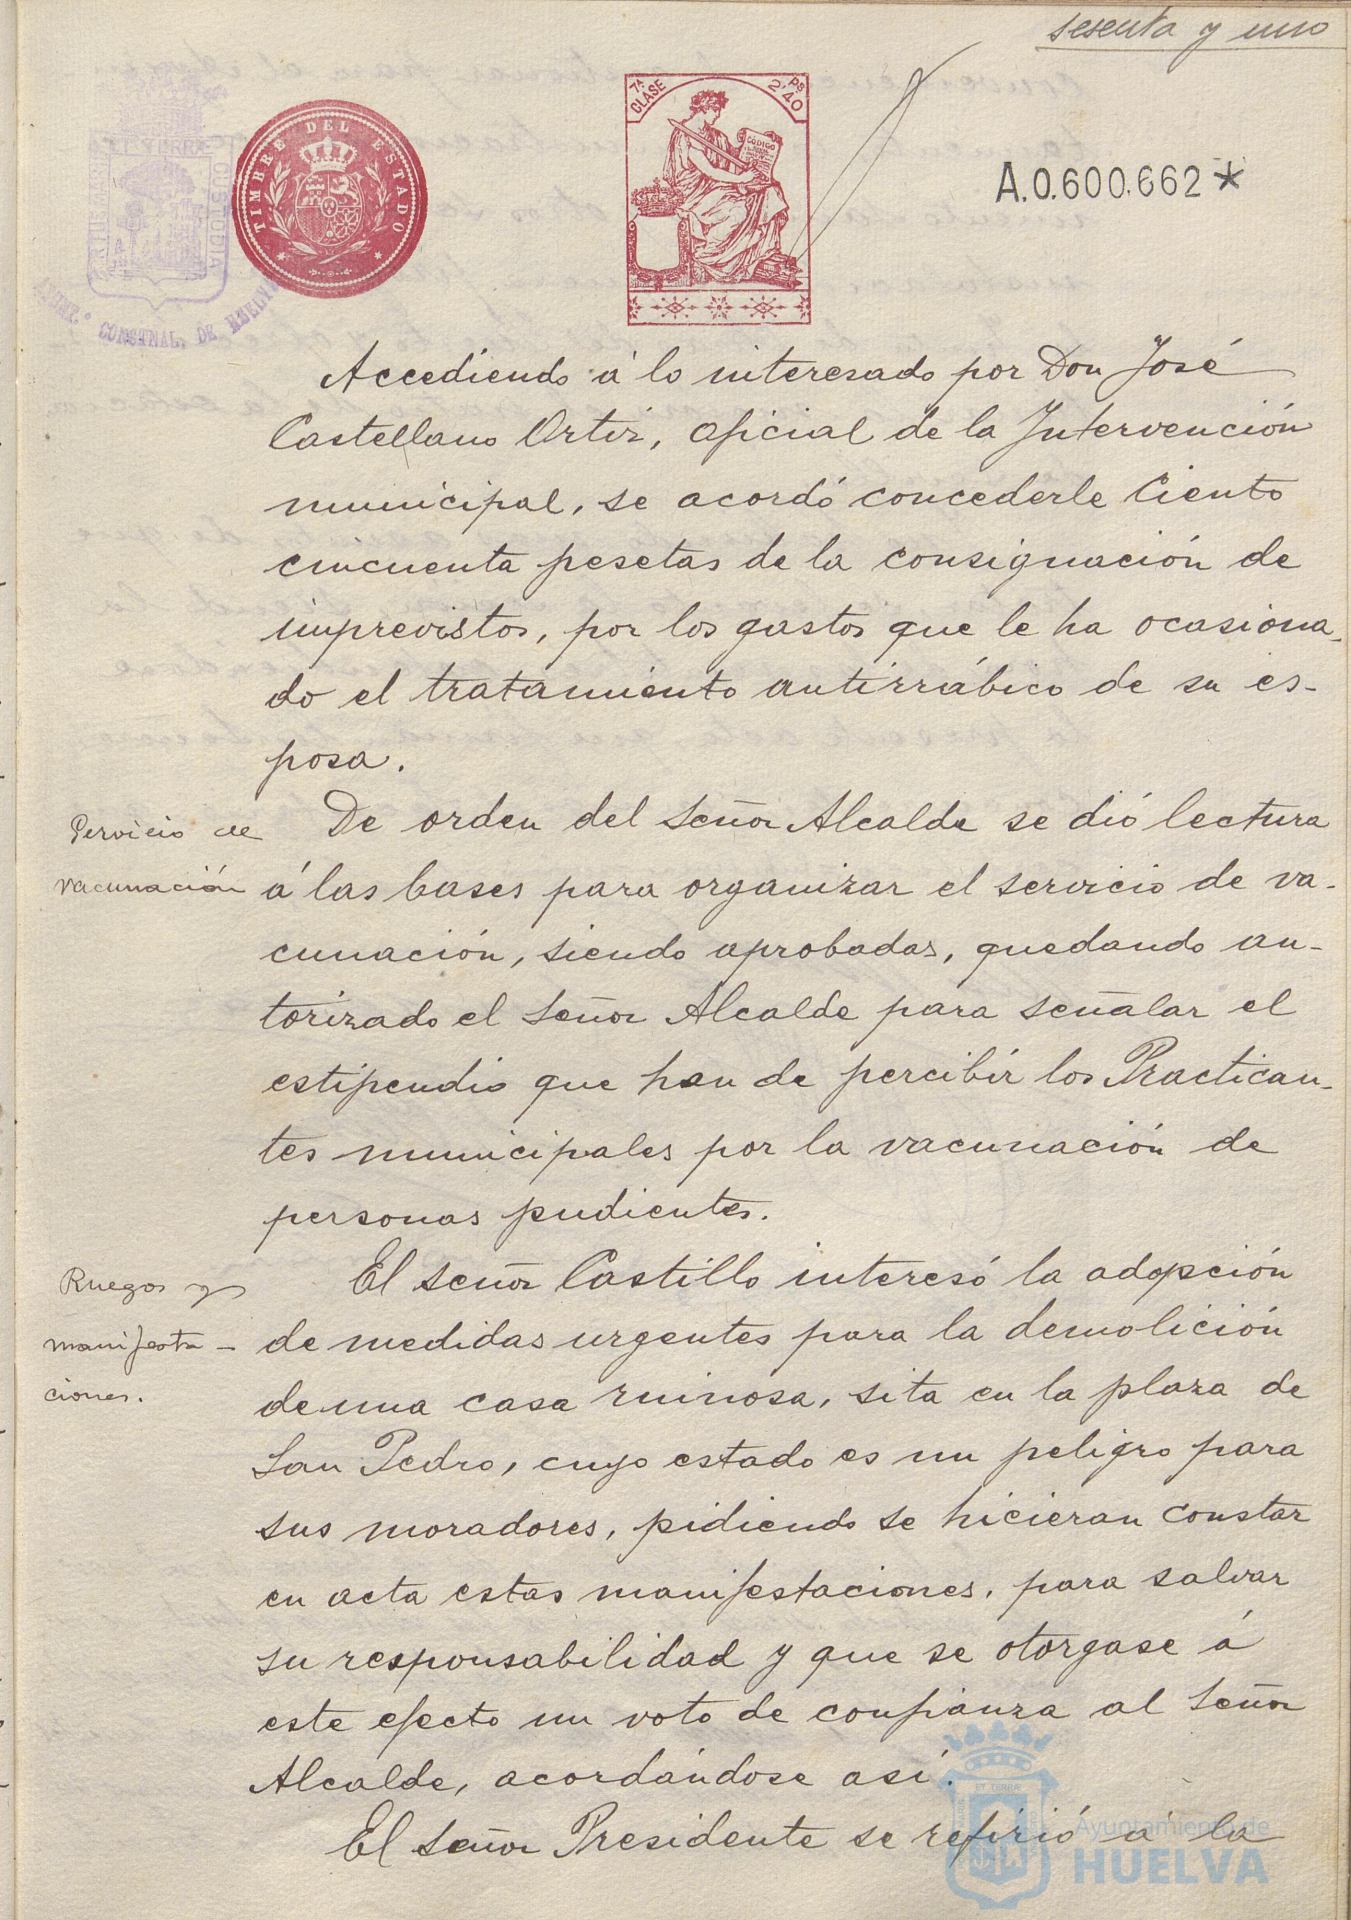 sesenta y uno
TIMBRE DEL ESTADO
7ª CLASE
2'40 PS
CÓDIGO
A.0.600.662*
ET TERRÆ
CUSTODIA
CONSTNAL. DE HUELVA
Accediendo á lo interesado por Don José
Castellano Ortiz, oficial de la Intervención
municipal, se acordó concederle ciento
cincuenta pesetas de la consignación de
imprevistos, por los gastos que le ha ocasiona-
do el tratamiento antirrábico de su es-
posa.
Servicio de
vacunación
De orden del Señor Alcalde se dió lectura
á las bases para organizar el servicio de va-
cunación, siendo aprobadas, quedando au-
torizado el Señor Alcalde para señalar el
estipendio que han de percibir los Practican-
tes municipales por la vacunación de
personas pudientes.
Ruegos y
manifesta-
ciones.
El señor Castillo interesó la adopción
de medidas urgentes para la demolición
de una casa ruinosa, sita en la plaza de
San Pedro, cuyo estado es un peligro para
sus moradores, pidiendo se hicieran constar
en acta estas manifestaciones, para salvar
su responsabilidad y que se otorgase á
este efecto un voto de confianza al Señor
Alcalde, acordándose así.
El Señor Presidente se refirió á la
Ayuntamiento de
HUELVA